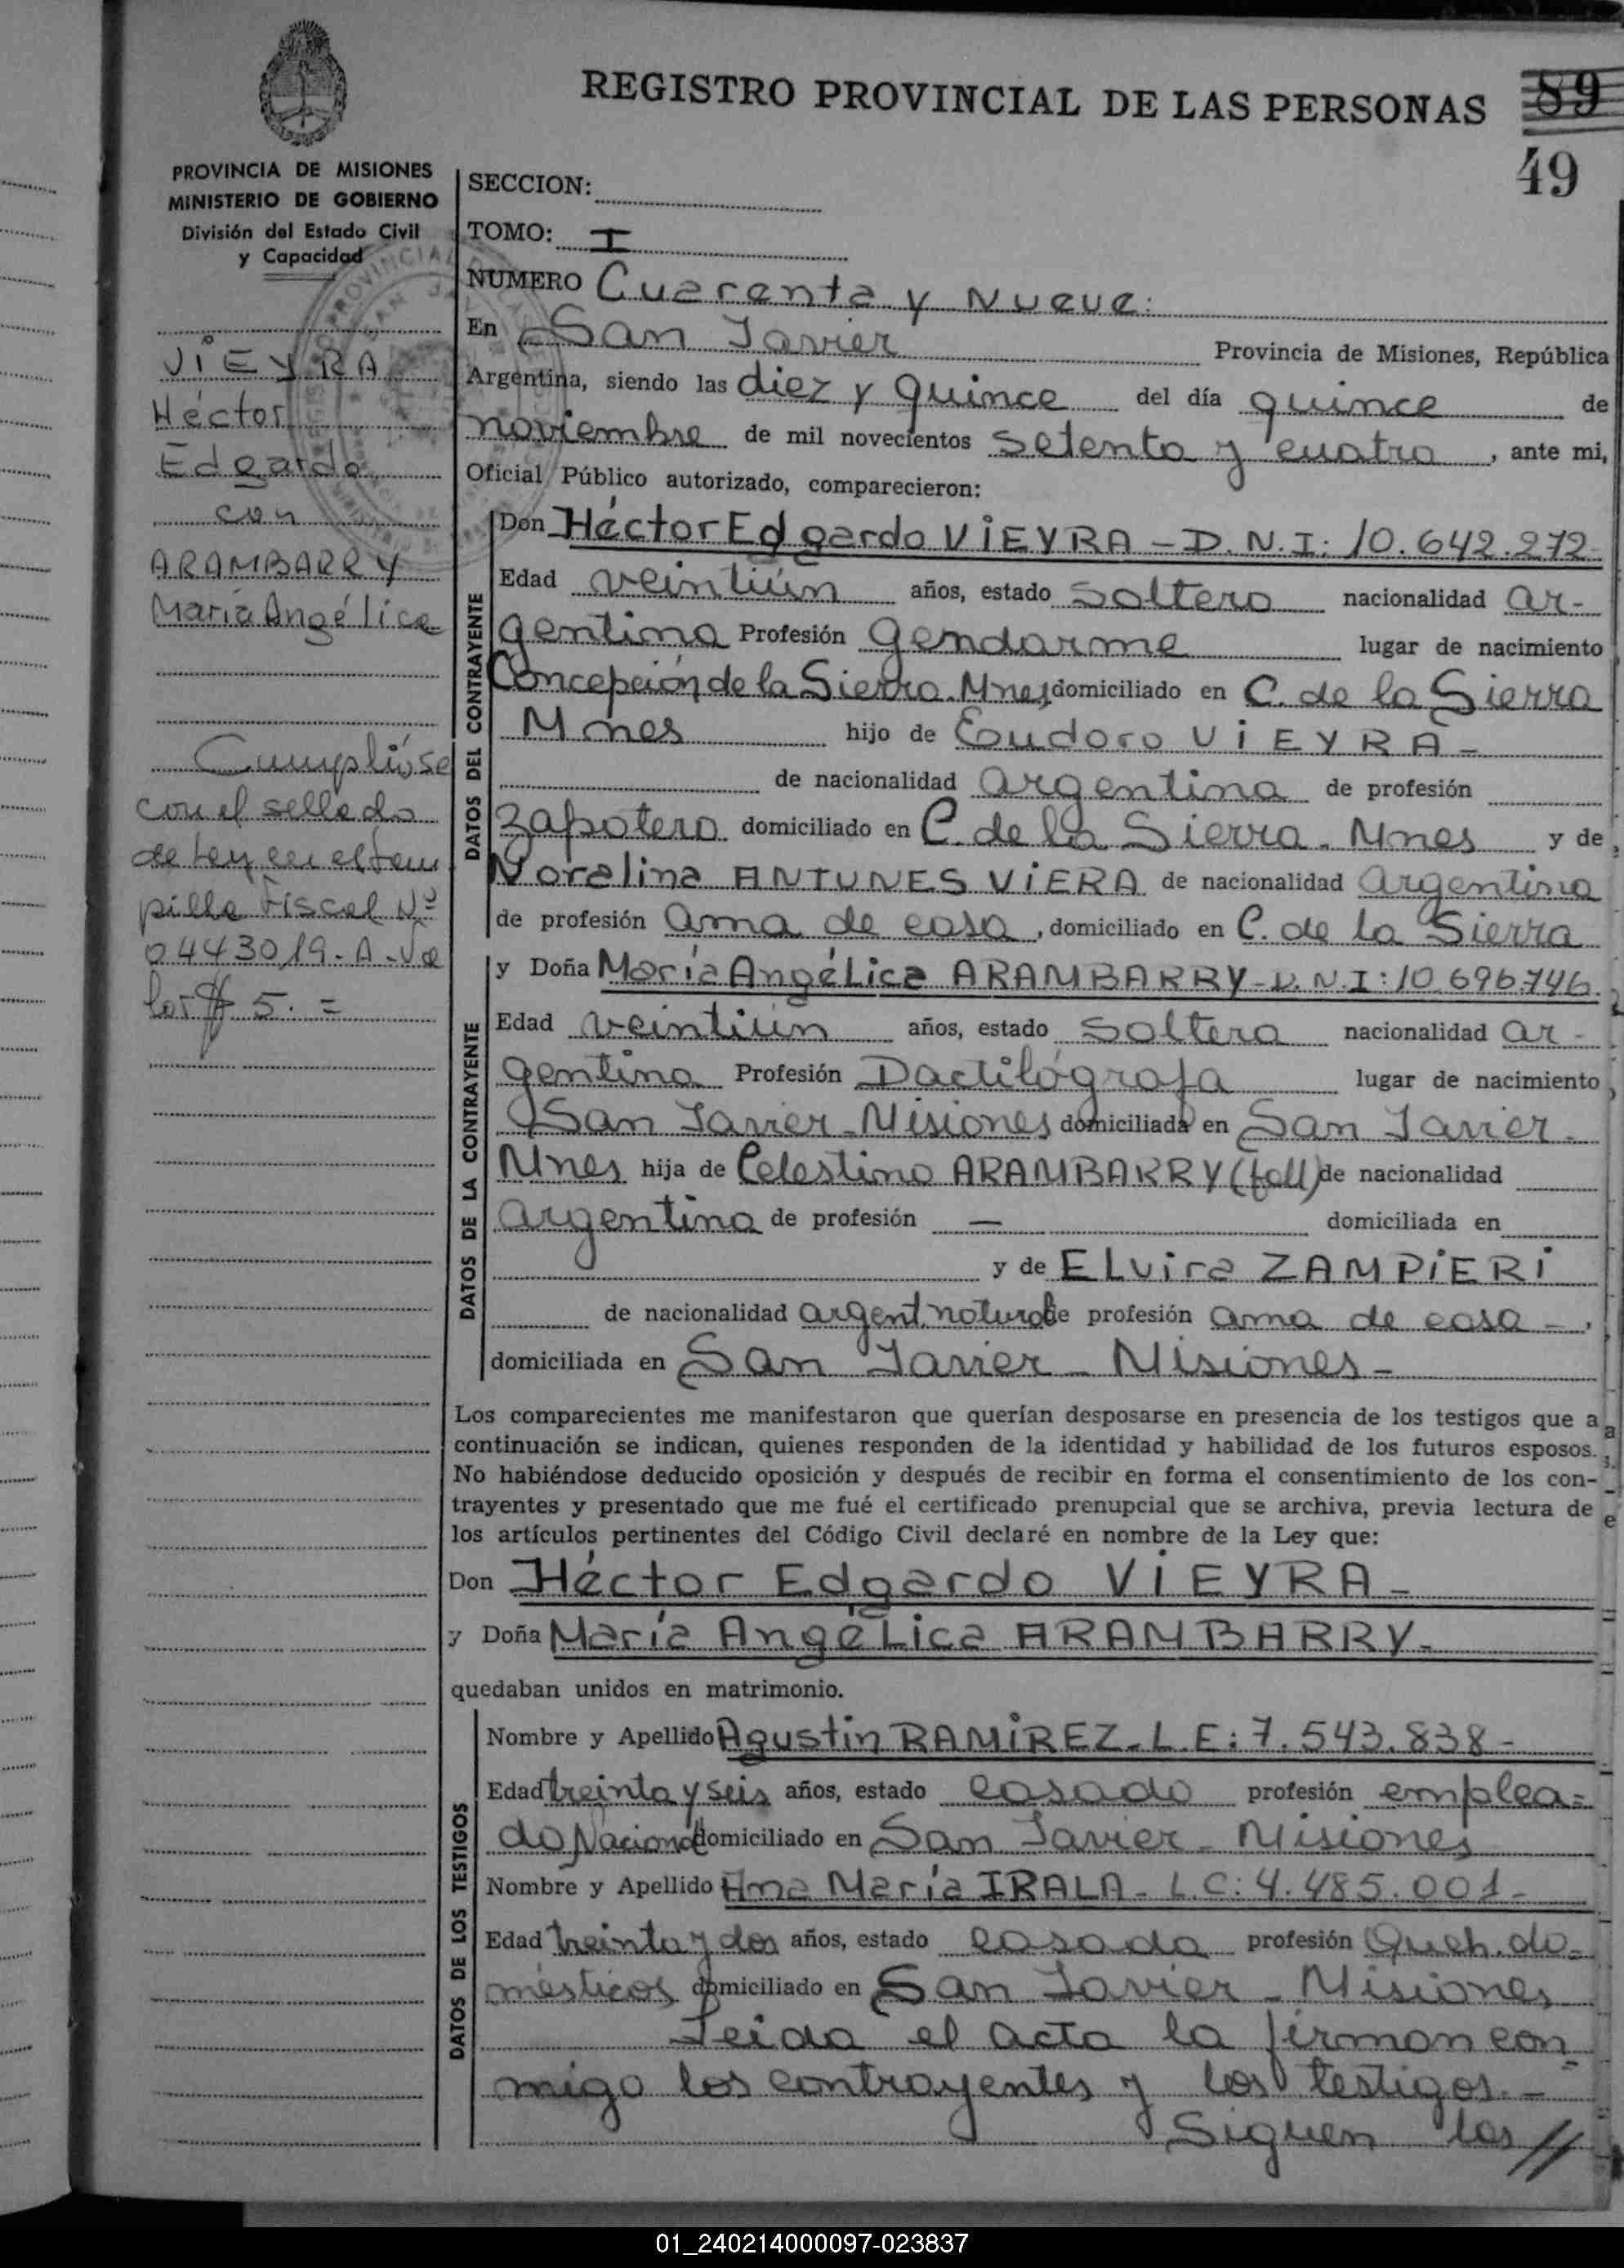 REGISTRO PROVINCIAL DE LAS PERSONAS
89
49
PROVINCIA DE MISIONES
MINISTERIO DE GOBIERNO
División del Estado Civil
y Capacidad
VIEYRA
Héctor
Edgardo
con
ARAMBARRY
María Angélica
Cumplióse
con el sellado
de Ley en el Estam
pilla Fiscal Nº
0443019-A-Va
lor $ 5.=
SECCION:
TOMO: I
NUMERO Cuarenta y Nueve:
En San Javier Provincia de Misiones, República
Argentina, siendo las diez y quince del día quince de
noviembre de mil novecientos setenta y cuatro, ante mi,
Oficial Público autorizado, comparecieron:
DATOS DEL CONTRAYENTE
Don Héctor Edgardo VIEYRA - D.N.I: 10.642.272
Edad veintiún años, estado soltero nacionalidad ar-
gentina Profesión Gendarme lugar de nacimiento
Concepción de la Sierra. Mnes domiciliado en C. de la Sierra
Mnes hijo de Eudoro VIEYRA -
de nacionalidad argentina de profesión
zapatero domiciliado en C. de la Sierra. Mnes y de
Noralina ANTUNES VIERA de nacionalidad argentina
de profesión ama de casa, domiciliado en C. de la Sierra
DATOS DE LA CONTRAYENTE
y Doña María Angélica ARAMBARRY - D.N.I: 10.696.746.
Edad veintiún años, estado soltera nacionalidad ar-
gentina Profesión Dactilógrafa lugar de nacimiento
San Javier - Misiones domiciliada en San Javier.
Mnes hija de Celestino ARAMBARRY (fall) de nacionalidad
argentina de profesión — domiciliada en
y de Elvira ZAMPIERI
de nacionalidad argent. natural de profesión ama de casa -,
domiciliada en San Javier - Misiones -
Los comparecientes me manifestaron que querían desposarse en presencia de los testigos que a
continuación se indican, quienes responden de la identidad y habilidad de los futuros esposos.
No habiéndose deducido oposición y después de recibir en forma el consentimiento de los con-
trayentes y presentado que me fué el certificado prenupcial que se archiva, previa lectura de
los artículos pertinentes del Código Civil declaré en nombre de la Ley que:
Don Héctor Edgardo VIEYRA -
y Doña María Angélica ARAMBARRY -
quedaban unidos en matrimonio.
DATOS DE LOS TESTIGOS
Nombre y Apellido Agustin RAMIREZ - L.E: 7.543.838 -
Edad treinta y seis años, estado casado profesión emplea=
do Nacional domiciliado en San Javier - Misiones
Nombre y Apellido Ana María IRALA - L.C: 4.485.001 -
Edad treinta y dos años, estado casada profesión Queh. do-
mésticos domiciliado en San Javier - Misiones
Leida el acta la firman con
migo los contrayentes y los testigos. -
Siguen las //
01_240214000097-023837